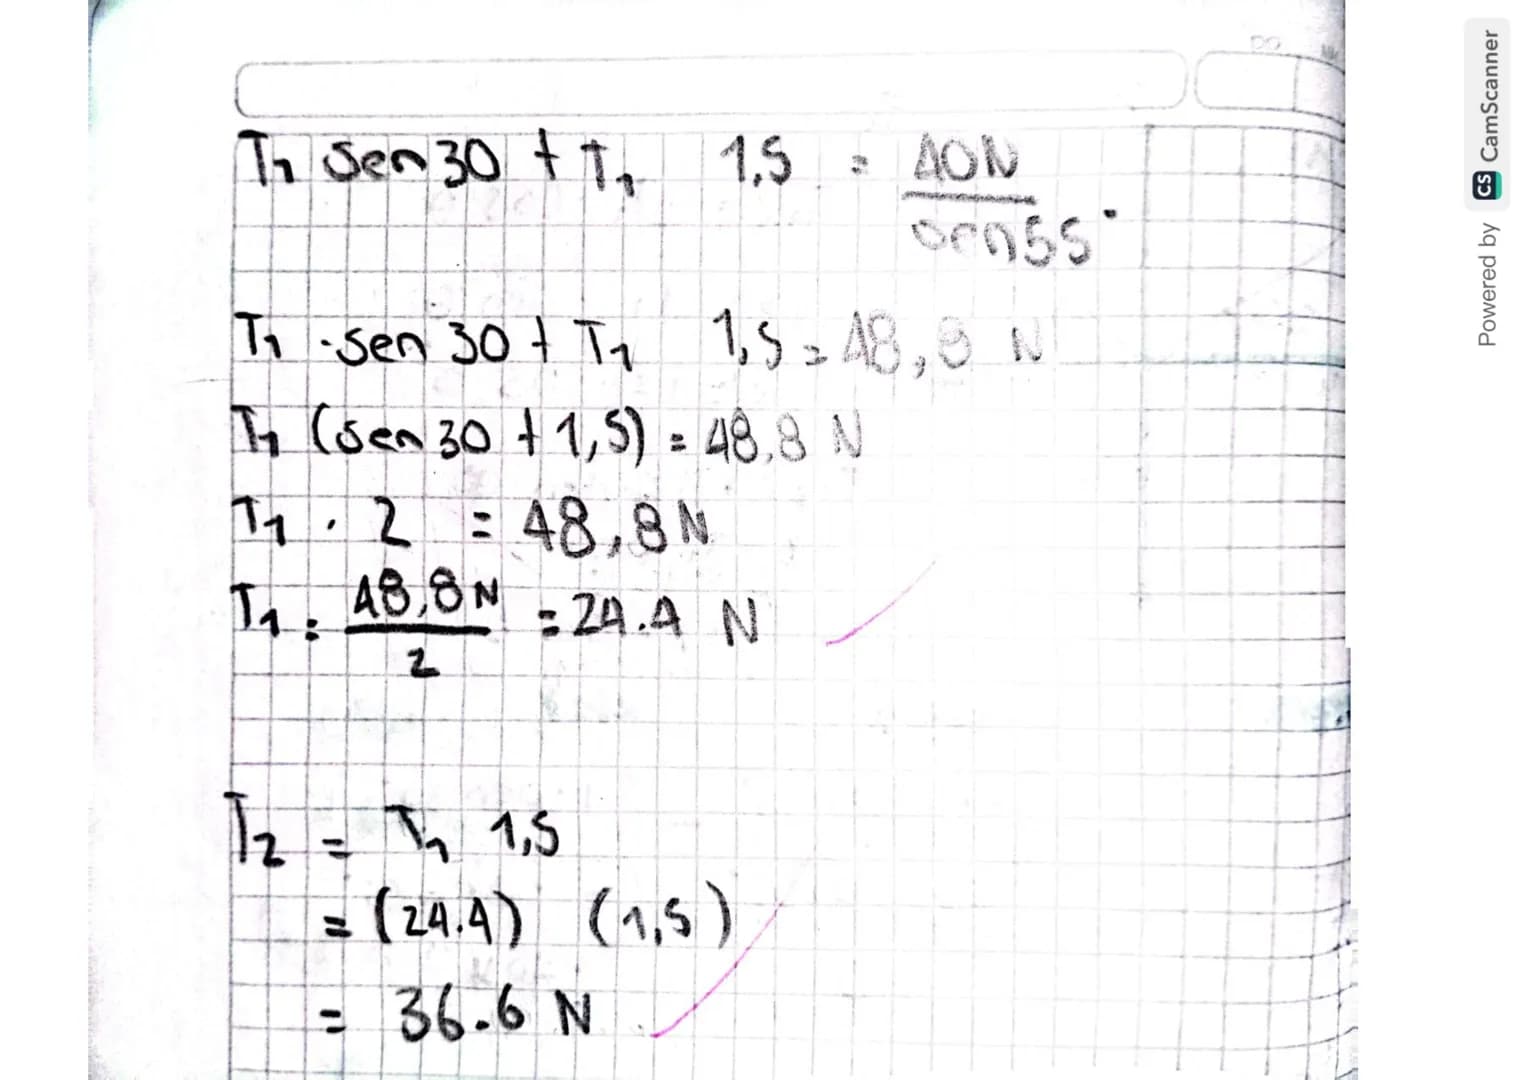 T1 Sen 30 + T1 1,5 = 40N
sen55°
T1 · sen 30 + T1 1,5 = 48,8 N
T1 (sen 30 + 1,5) = 48,8 N
T1 · 2 = 48,8 N
T1 = 48,8 N = 24.4 N
2
T2 = T1 1,5
= (24.4) (1,5)
= 36.6 N
Powered by CS CamScanner